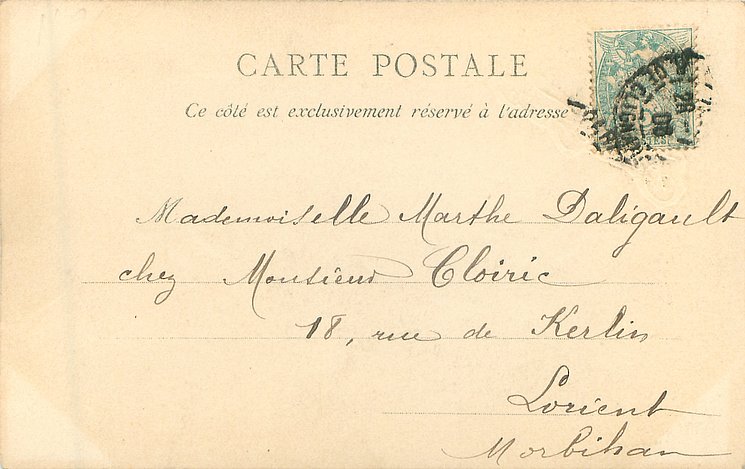 CARTE POSTALE
Ce côté est exclusivement réservé à l'adresse
Mademoiselle Marthe Daligault
chez Monsieur Cloiric
18, rue de Kerlin
Lorient
Morbihan